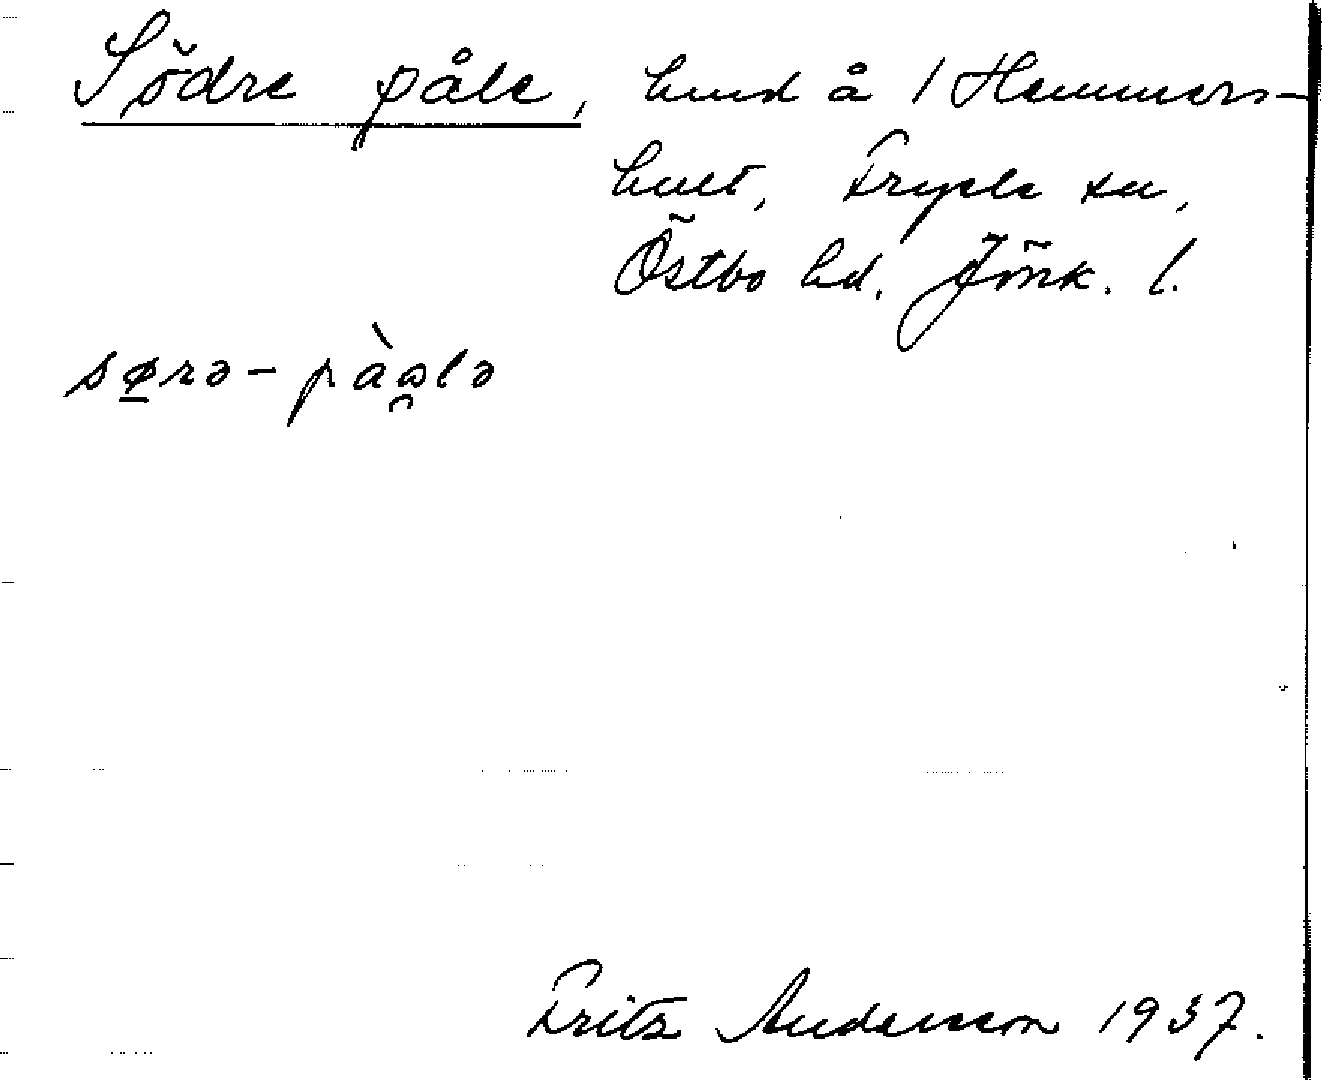 Södre påle, lund å 1 Hammars-
hult, Fryele sn,
Östbo hd. Jönk. l.
sørə-pàɷlə
Fritz Andersson 1937.